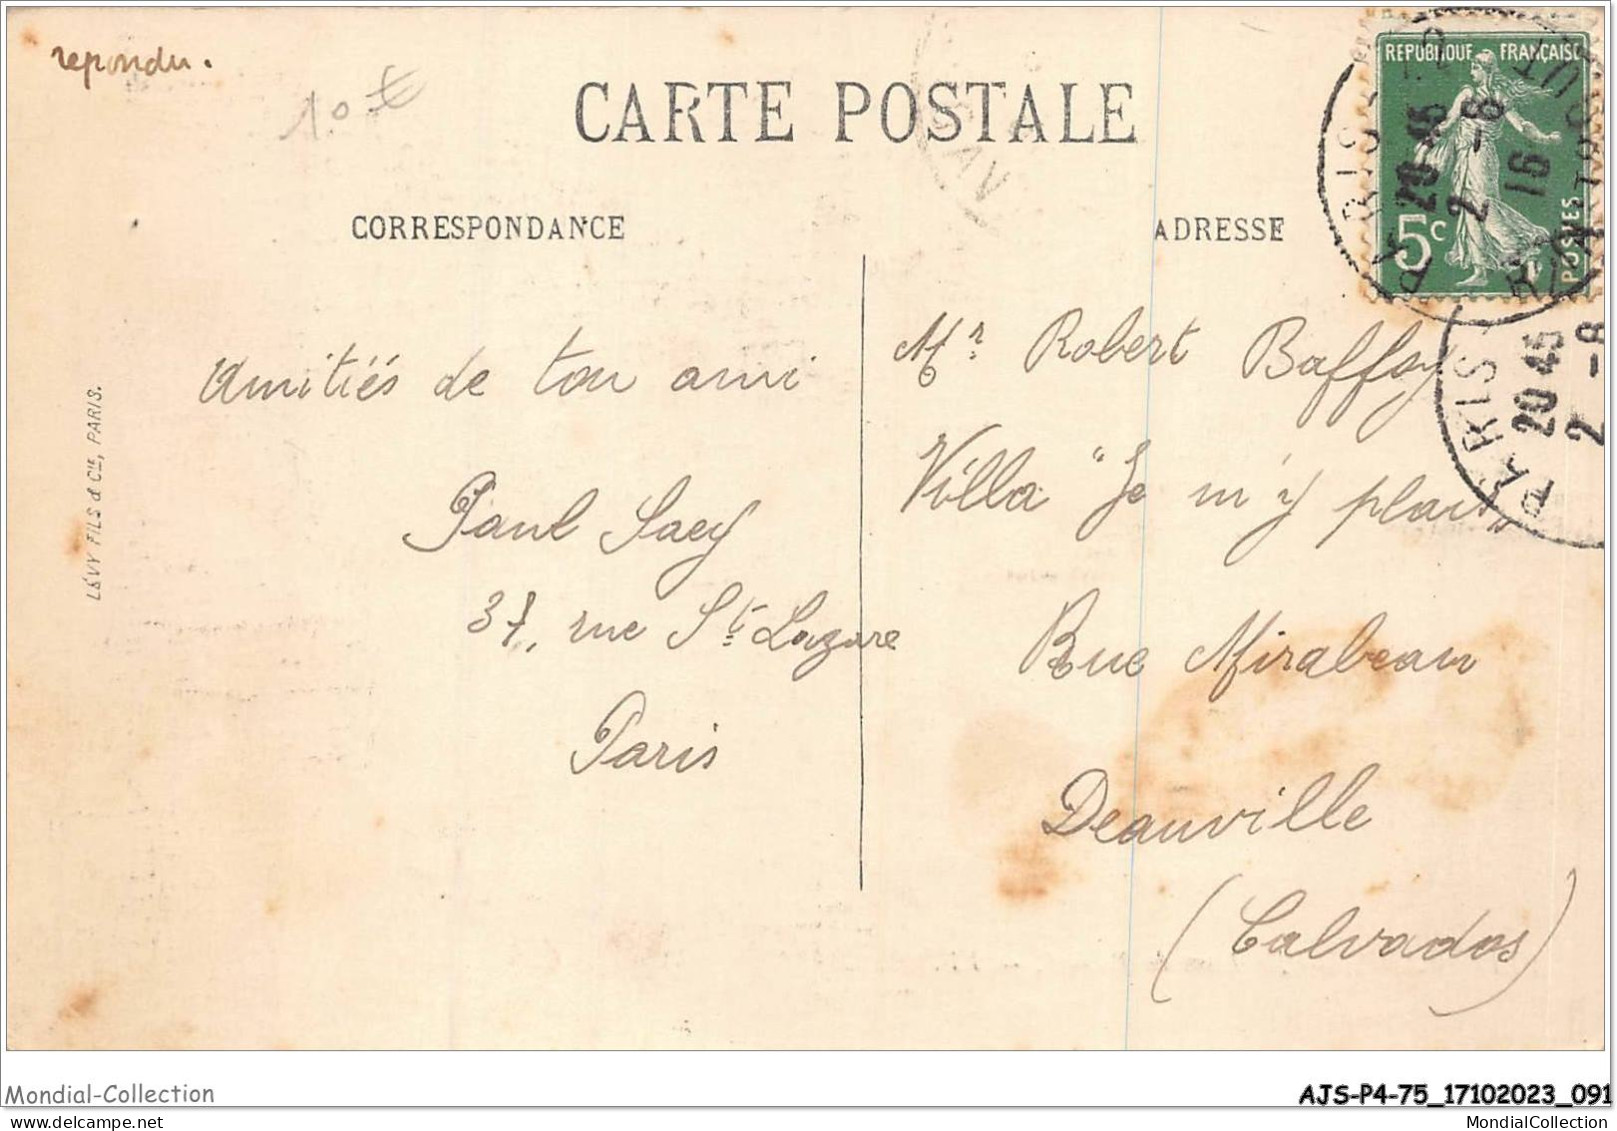 repondu.
10 €
CARTE POSTALE
CORRESPONDANCE
ADRESSE
REPUBLIQUE FRANÇAISE
5c
POSTES
PARIS
20 45
2 -8
16
PARIS
20 45
2 -8
LÉVY FILS & Cie, PARIS.
Amitiés de ton ami
Paul Saey
37, rue St. Lazare
Paris
Mr Robert Baffoy
Villa "Je m'y plais"
Rue Mirabeau
Deauville
(Calvados)
Mondial-Collection
AJS-P4-75_17102023_091
MondialCollection.com